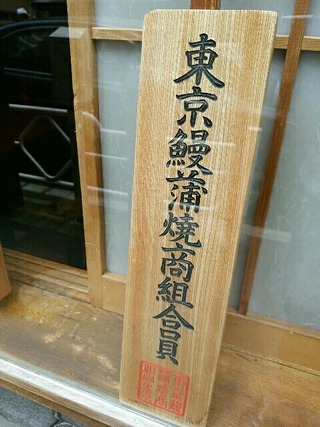 東京鰻蒲焼商組合員